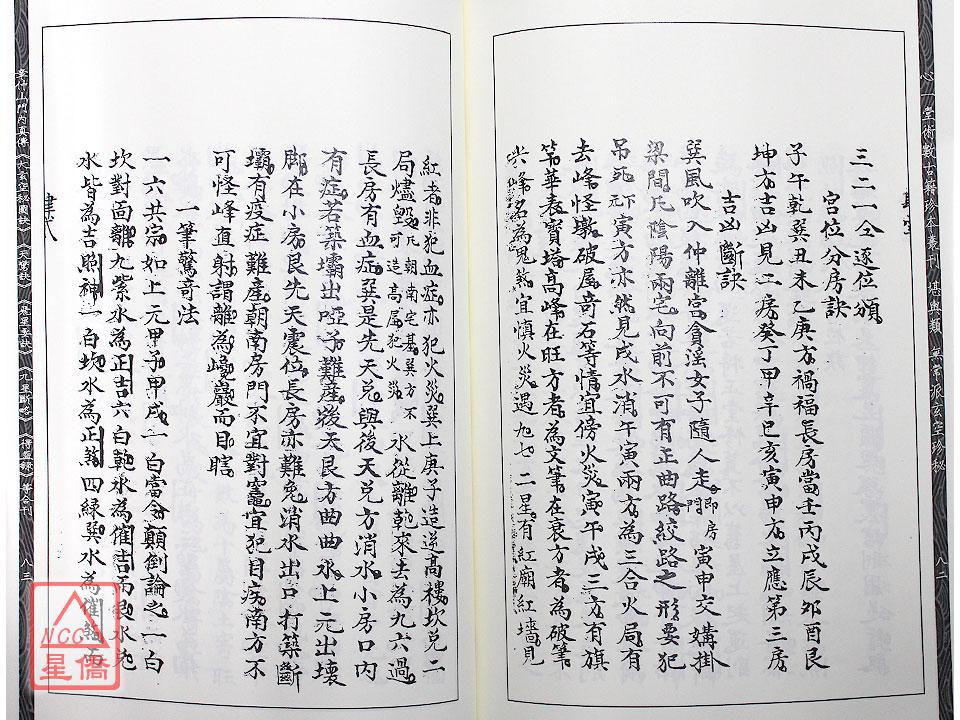 心一堂術數古籍珍本叢刊 堪輿類 無常派玄空珍秘
八二
三二一全逐位頒
宮位分房訣
子午乾巽丑未乙庚方禍福長房當壬丙戌辰卯酉艮
坤方吉凶見二房癸丁甲辛巳亥寅申方立應第三房
吉凶斷訣
巽風吹入仲離宮貪淫女子隨人走即房門寅申交媾掛
梁間凡陰陽兩宅向前不可有正曲路絞路之形要犯
吊死下元寅方亦然見戌水消午寅兩方為三合火局有
去峰怪墩破屋奇石等情宜傍火災寅午戌三方有旗
等華表寶塔高峰在旺方者為文筆在衰方者為破筆
尖峰名為鬼煞宜慎火災遇九七二星有紅廟紅墻見
紅者非犯血症亦犯火災巽上庚子造逆高樓坎兌二
局燼毀凡朝南宅基巽方不可造高屋犯火災水從離乾來去為九六過
長房有血症巽是先天兌與後天兌方消水小房口內
有症若築壩出啞子難產後天艮方曲曲水上元出壞
脚在小房艮先天震位長房亦難免消水出口打築斷
壩有疫症難產朝南房門不宜對竈宜犯目疾南方不
可怪峰直射謂離為巉巖而目瞎
一筆驚奇法
一六共宗如上元甲子甲戌一白當令顛倒論之一白
坎對面離九紫水為正吉六白乾水為催吉而艮水
水皆為吉照神一白坎水為正煞四綠巽水為催煞而
八三
NCC
星僑